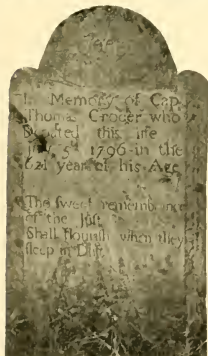 In Memory of Cap
Thomas Crocer who
Departed this life
5th 1796 in the
62d year of his Age
The sweet remembrance
of the Just
Shall flourish when they
sleep in Dust.